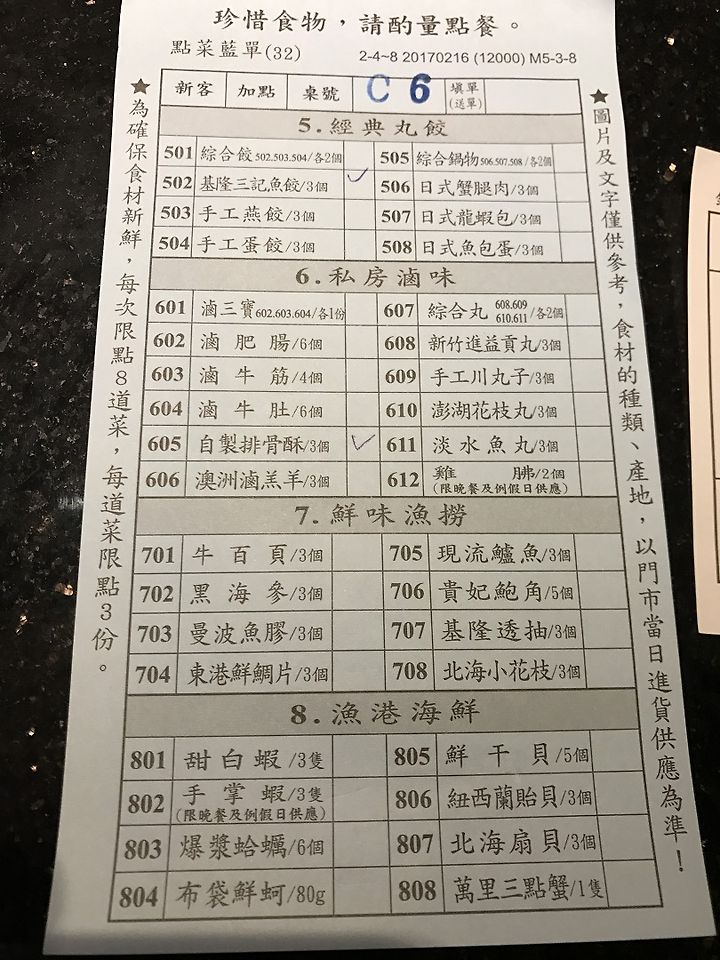 珍惜食物，請酌量點餐。
點菜藍單(32)
2-4~8 20170216 (12000) M5-3-8
新客 加點 桌號 C 6 填單(送單)
★為確保食材新鮮，每次限點8道菜，每道菜限點3份。
5.經典丸餃
501 綜合餃502.503.504/各2個
502 基隆三記魚餃/3個
503 手工燕餃/3個
504 手工蛋餃/3個
505 綜合鍋物506.507.508/各2個
506 日式蟹腿肉/3個
507 日式龍蝦包/3個
508 日式魚包蛋/3個
6.私房滷味
601 滷三寶602.603.604/各1份
602 滷肥腸/6個
603 滷牛筋/4個
604 滷牛肚/6個
605 自製排骨酥/3個
606 澳洲滷羔羊/3個
607 綜合丸608.609 610.611/各2個
608 新竹進益貢丸/3個
609 手工川丸子/3個
610 澎湖花枝丸/3個
611 淡水魚丸/3個
612 雞腁/2個
(限晚餐及例假日供應)
7.鮮味漁撈
701 牛百頁/3個
702 黑海參/3個
703 曼波魚膠/3個
704 東港鮮鯛片/3個
705 現流鱸魚/3個
706 貴妃鮑角/5個
707 基隆透抽/3個
708 北海小花枝/3個
8.漁港海鮮
801 甜白蝦/3隻
802 手掌蝦/3隻
(限晚餐及例假日供應)
803 爆漿蛤蠣/6個
804 布袋鮮蚵/80g
805 鮮干貝/5個
806 紐西蘭貽貝/3個
807 北海扇貝/3個
808 萬里三點蟹/1隻
★圖片及文字僅供參考，食材的種類、產地，以門市當日進貨供應為準！